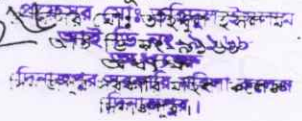 প্রফেসর মোঃ তাইফুল ইসলাম
আইডি নং
অধ্যক্ষ
দিনাজপুর সরকারি মহিলা কলেজ
দিনাজপুর।